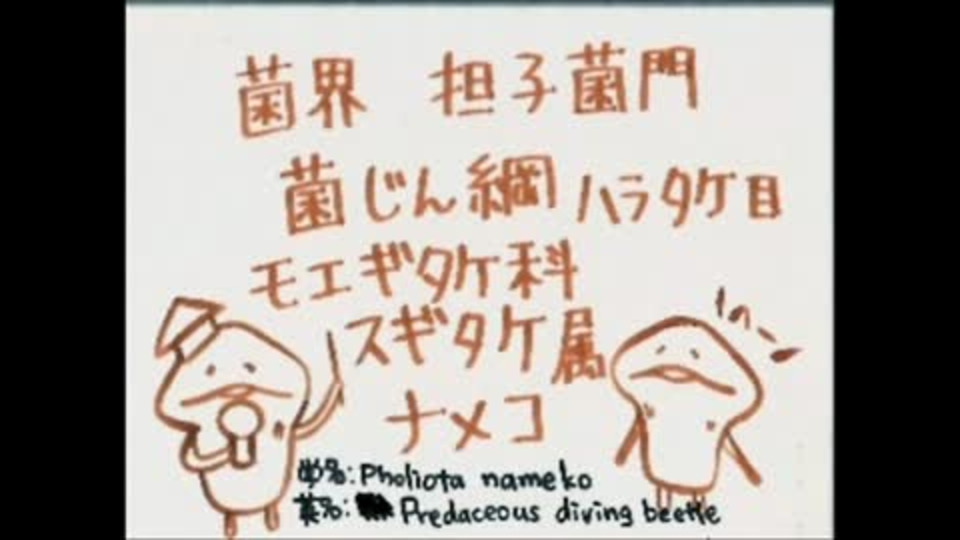 菌界 担子菌門
菌じん綱 ハラタケ目
モエギタケ科
スギタケ属
ナメコ
学名: Pholiota nameko
英名: Predaceous diving beetle